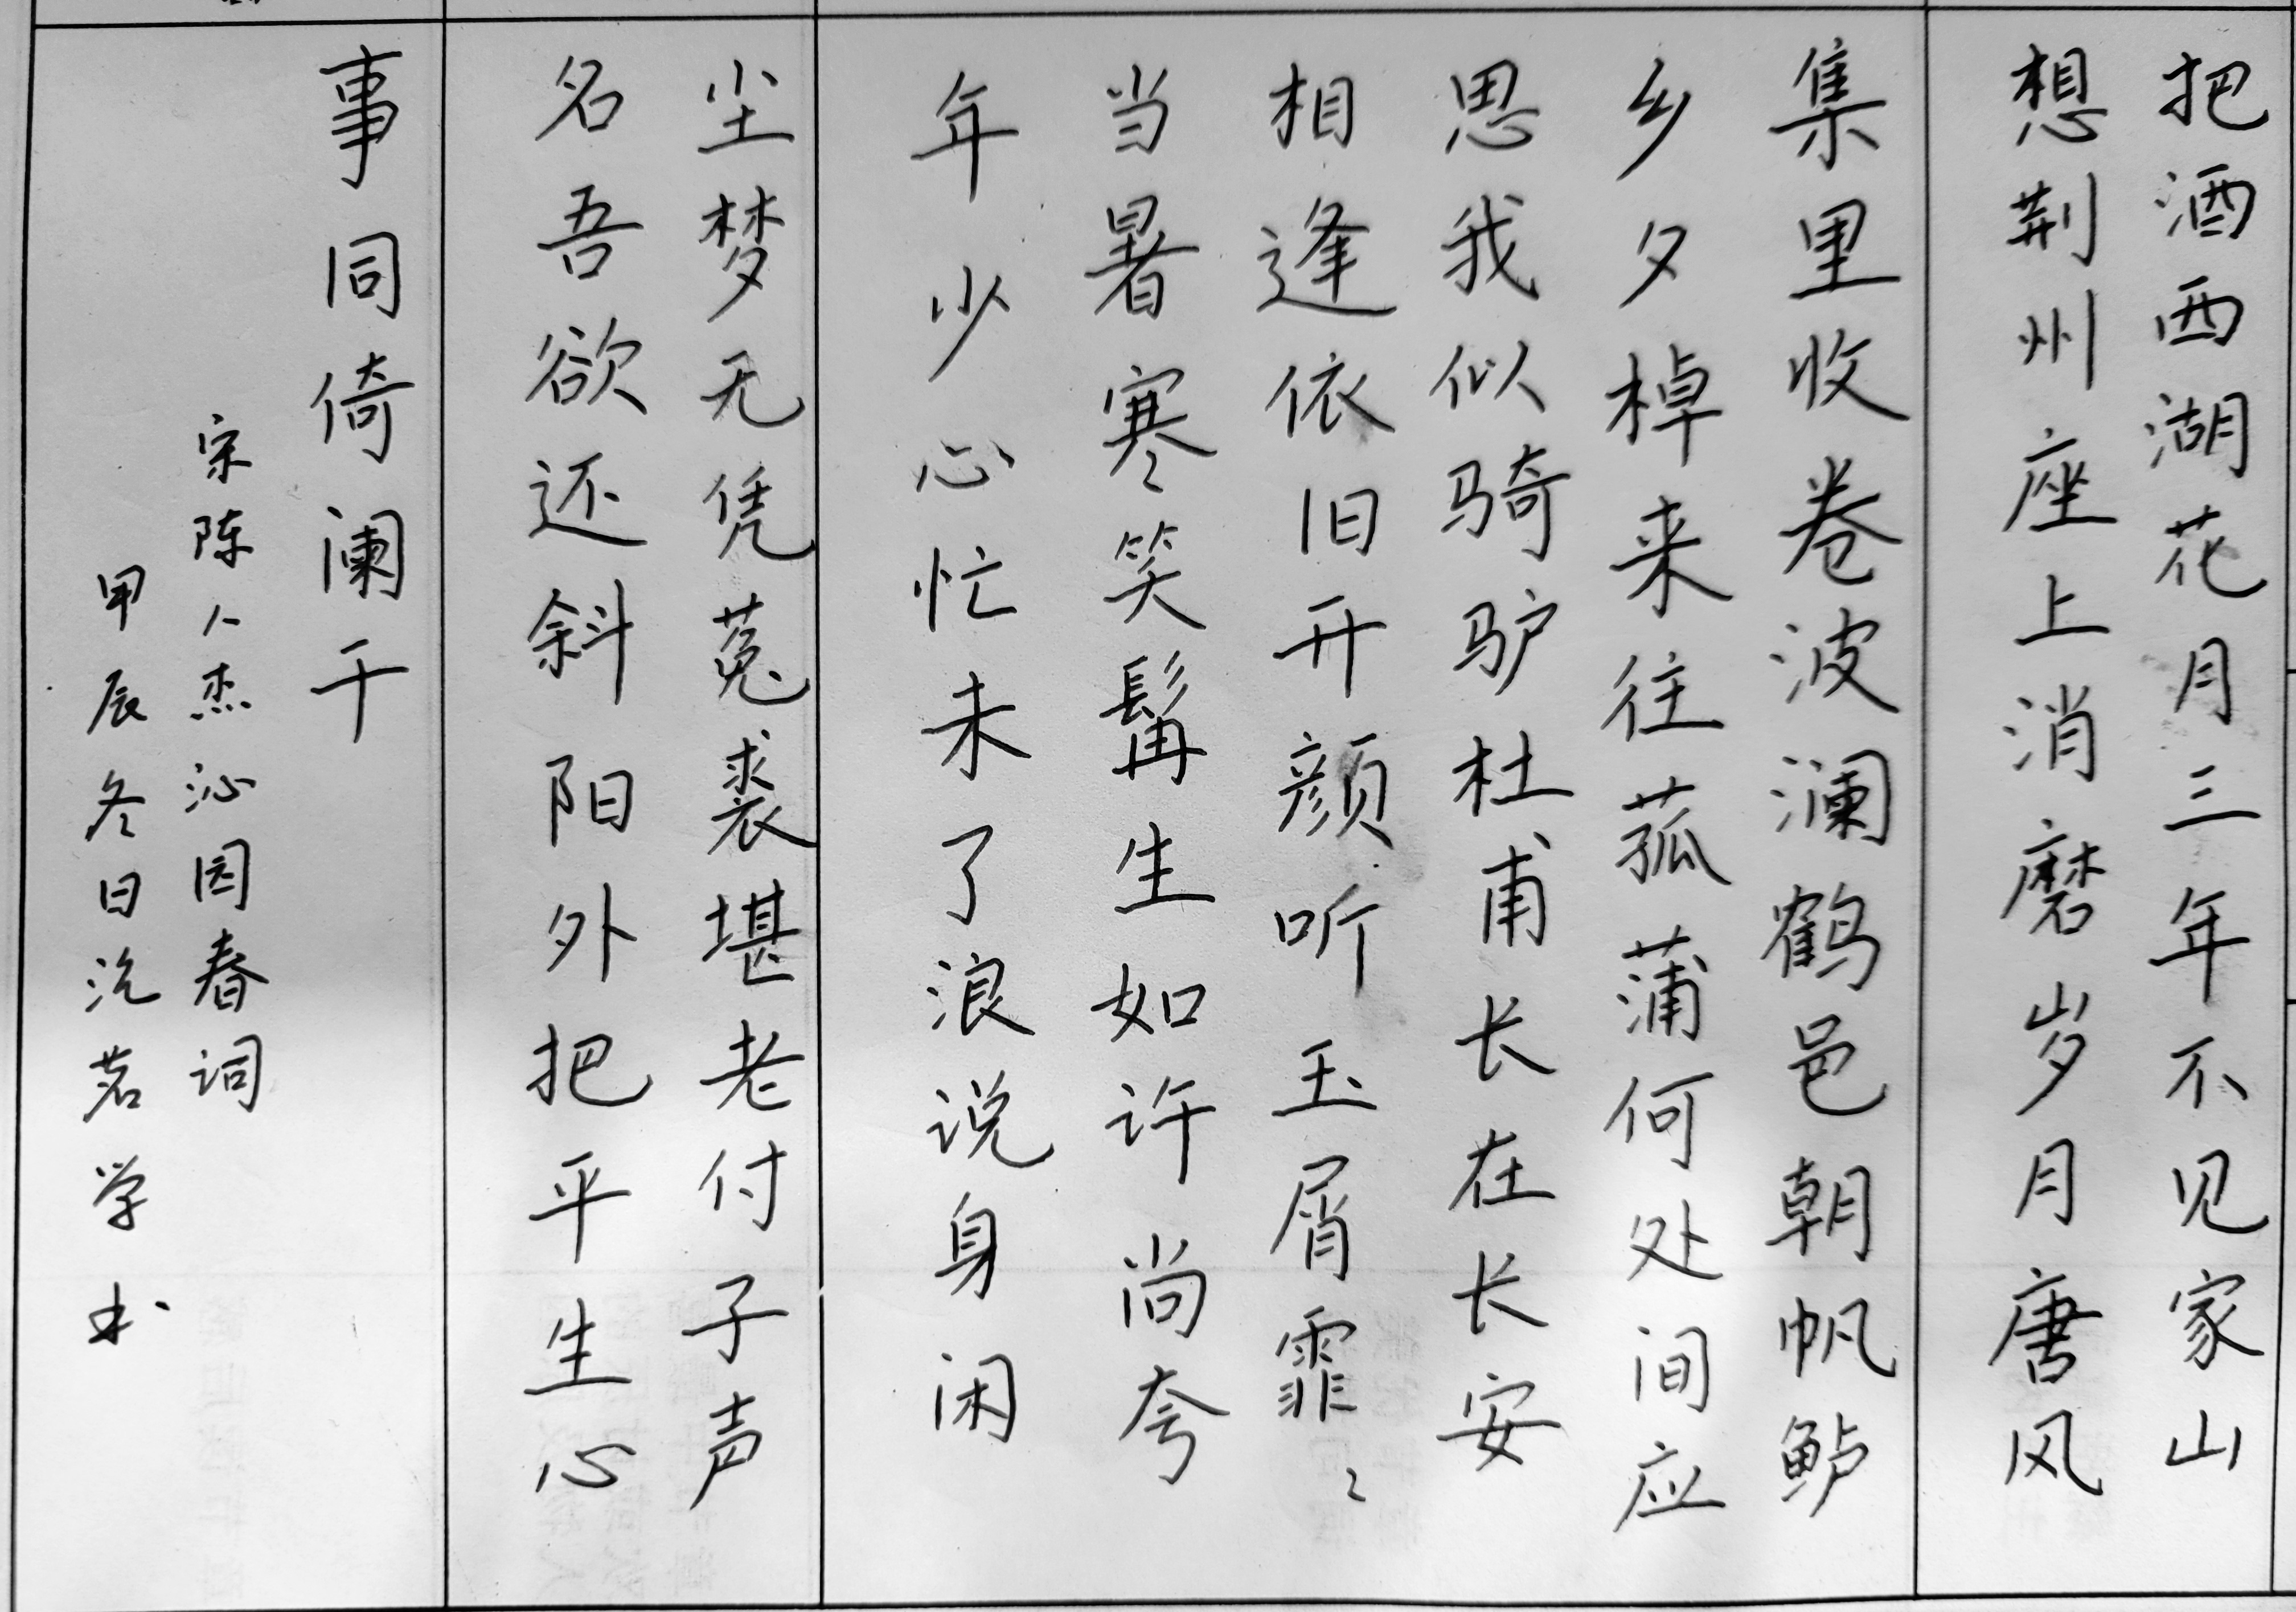 把酒西湖花月三年不见家山
想荆州座上消磨岁月唐风
集里收卷波澜鹤邑朝帆鲈
乡夕棹来往菰蒲何处间应
思我似骑驴杜甫长在长安
相逢依旧开颜听玉屑霏〻
当暑寒笑髯生如许尚夸
年少心忙未了浪说身闲
尘梦无凭菟裘堪老付子声
名吾欲还斜阳外把平生心
事同倚阑干
宋陈人杰沁园春词
甲辰冬日茗学书